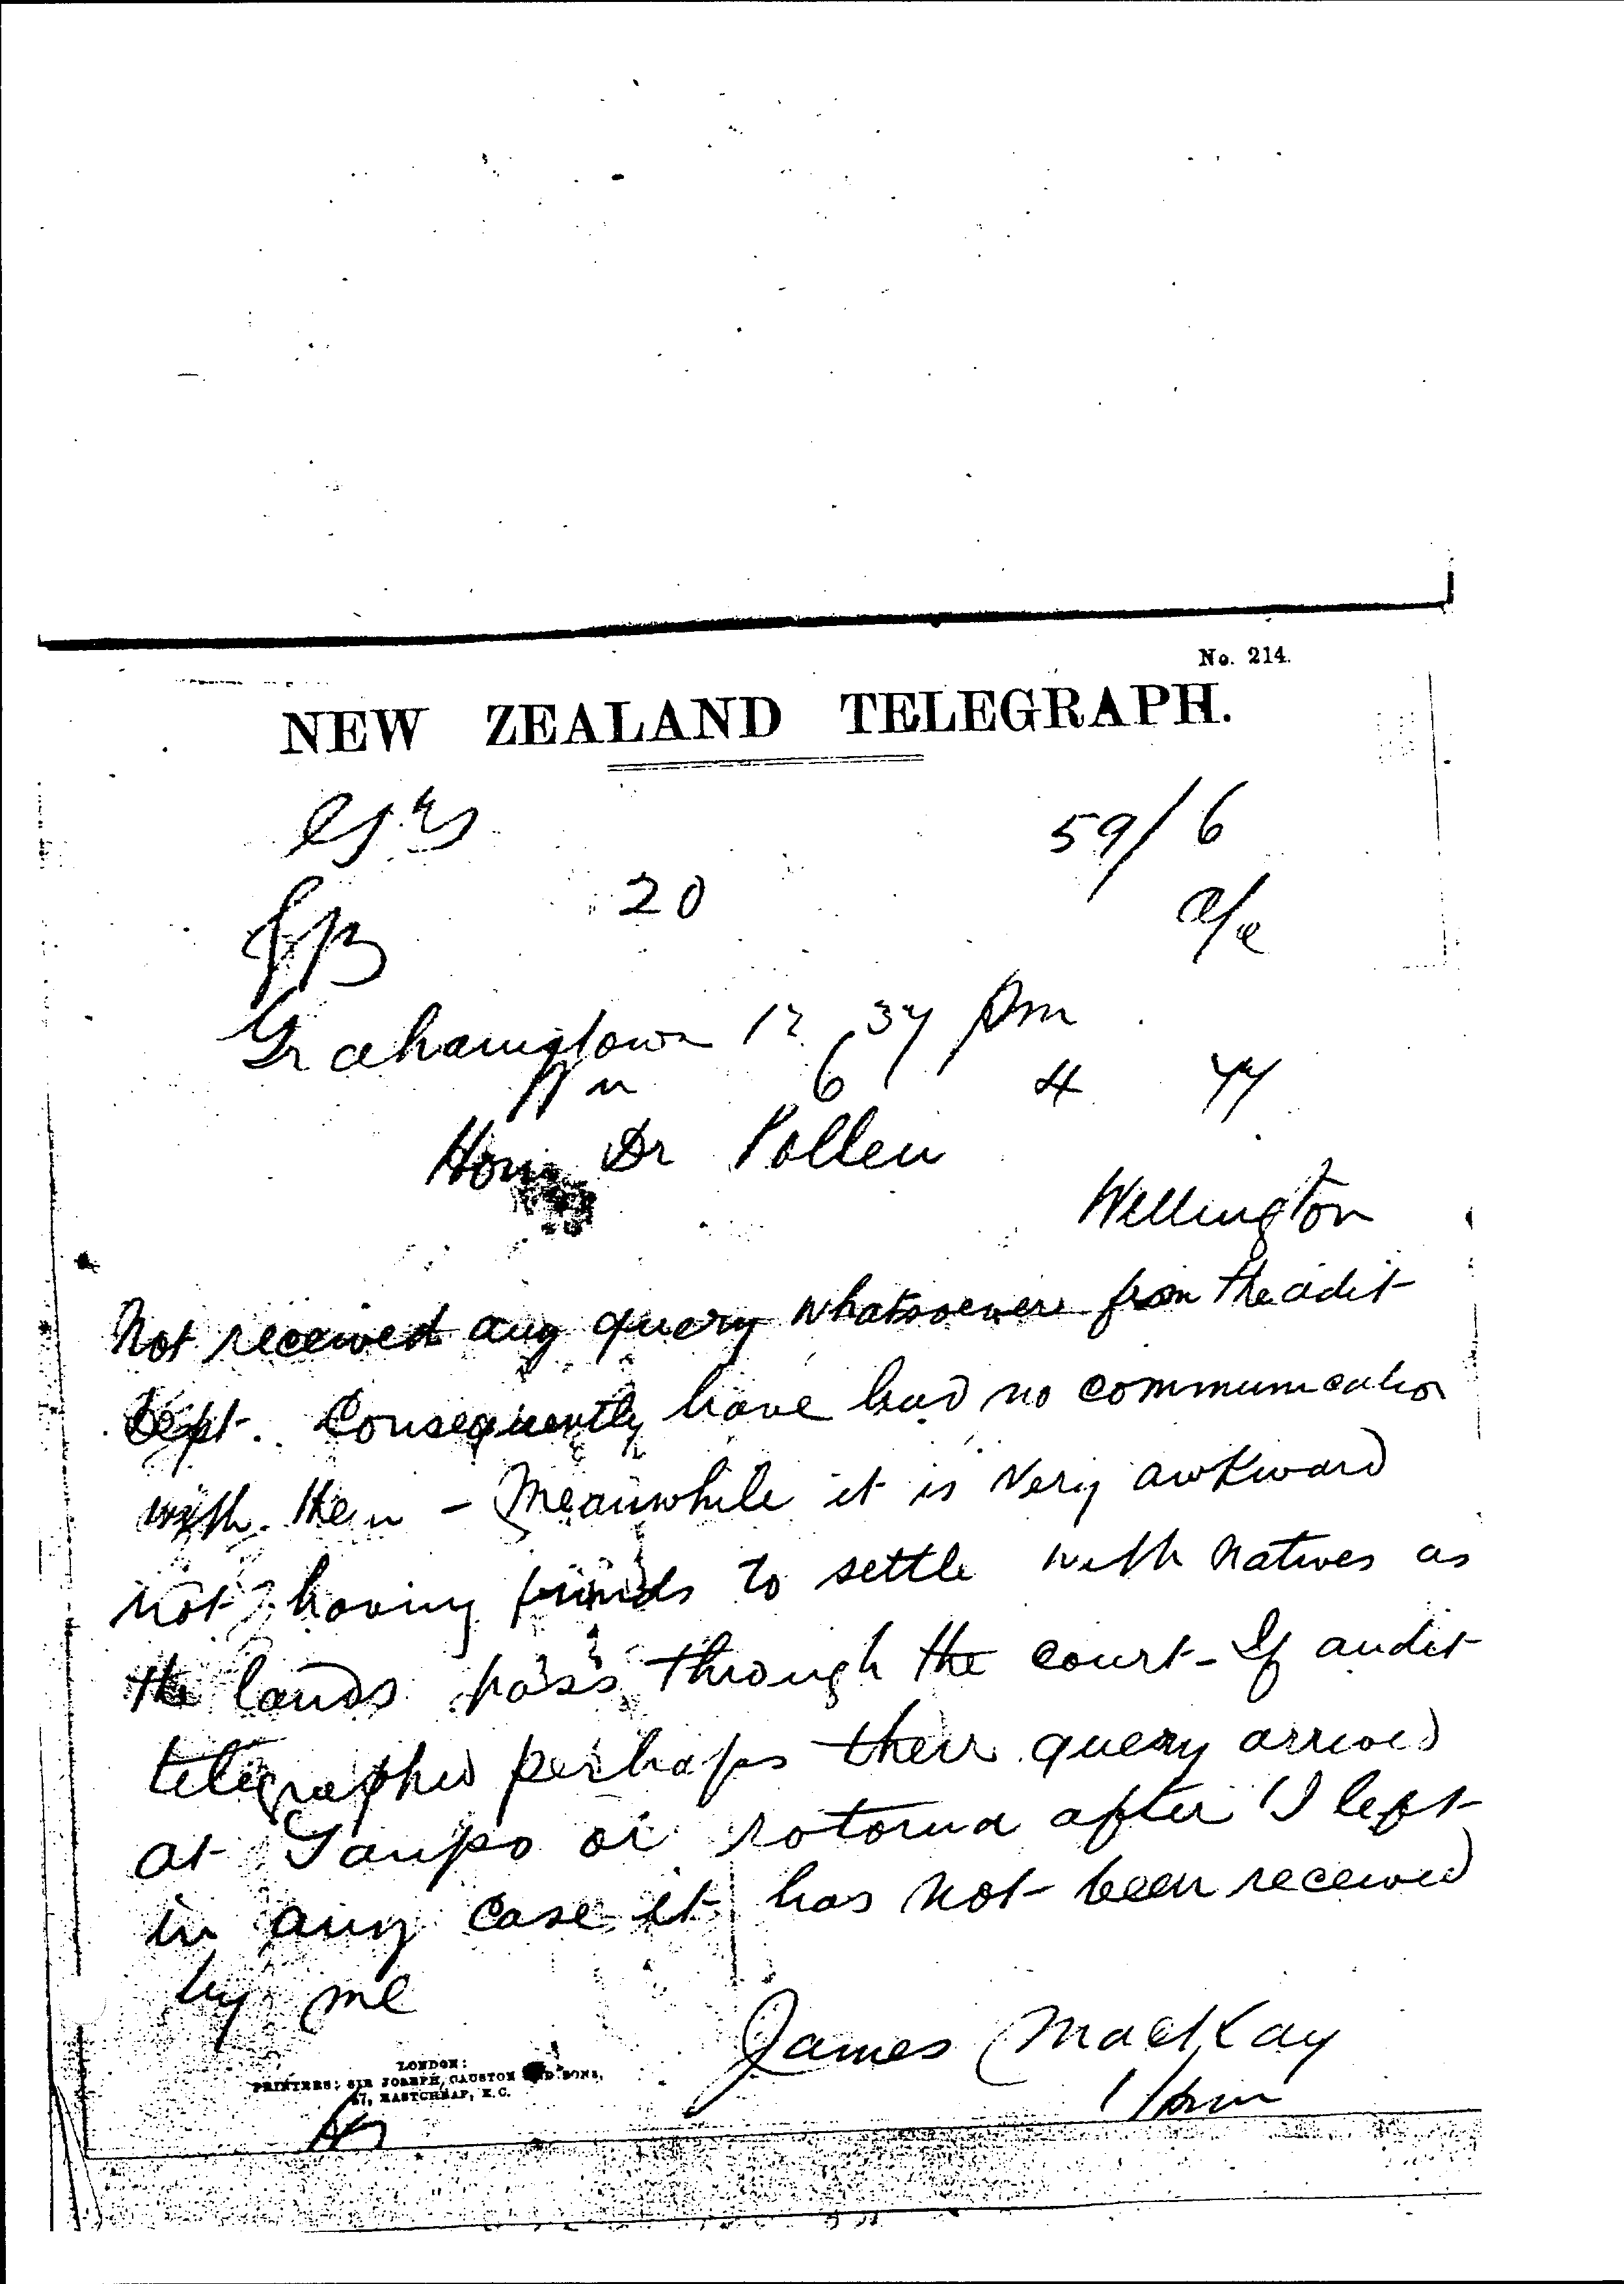 No. 214.
NEW ZEALAND TELEGRAPH.
59/6
20
Grahamstown 12 37 pm
6 4 77
Hon Dr Pollen
Wellington
Not received any query whatsoever from the adit
Dept. Consequently have had no communication
with them - Meanwhile it is very awkward
not having funds to settle with natives as
the lands pass through the court - If audit
telegraphed perhaps their query arrived
at Taupo or rotorua after I left
in any case it has not been received
by me
James MacKay
LONDON:
PRINTERS: SIR JOSEPH, CAUSTON AND SONS,
47, EASTCHEAP, E.C.